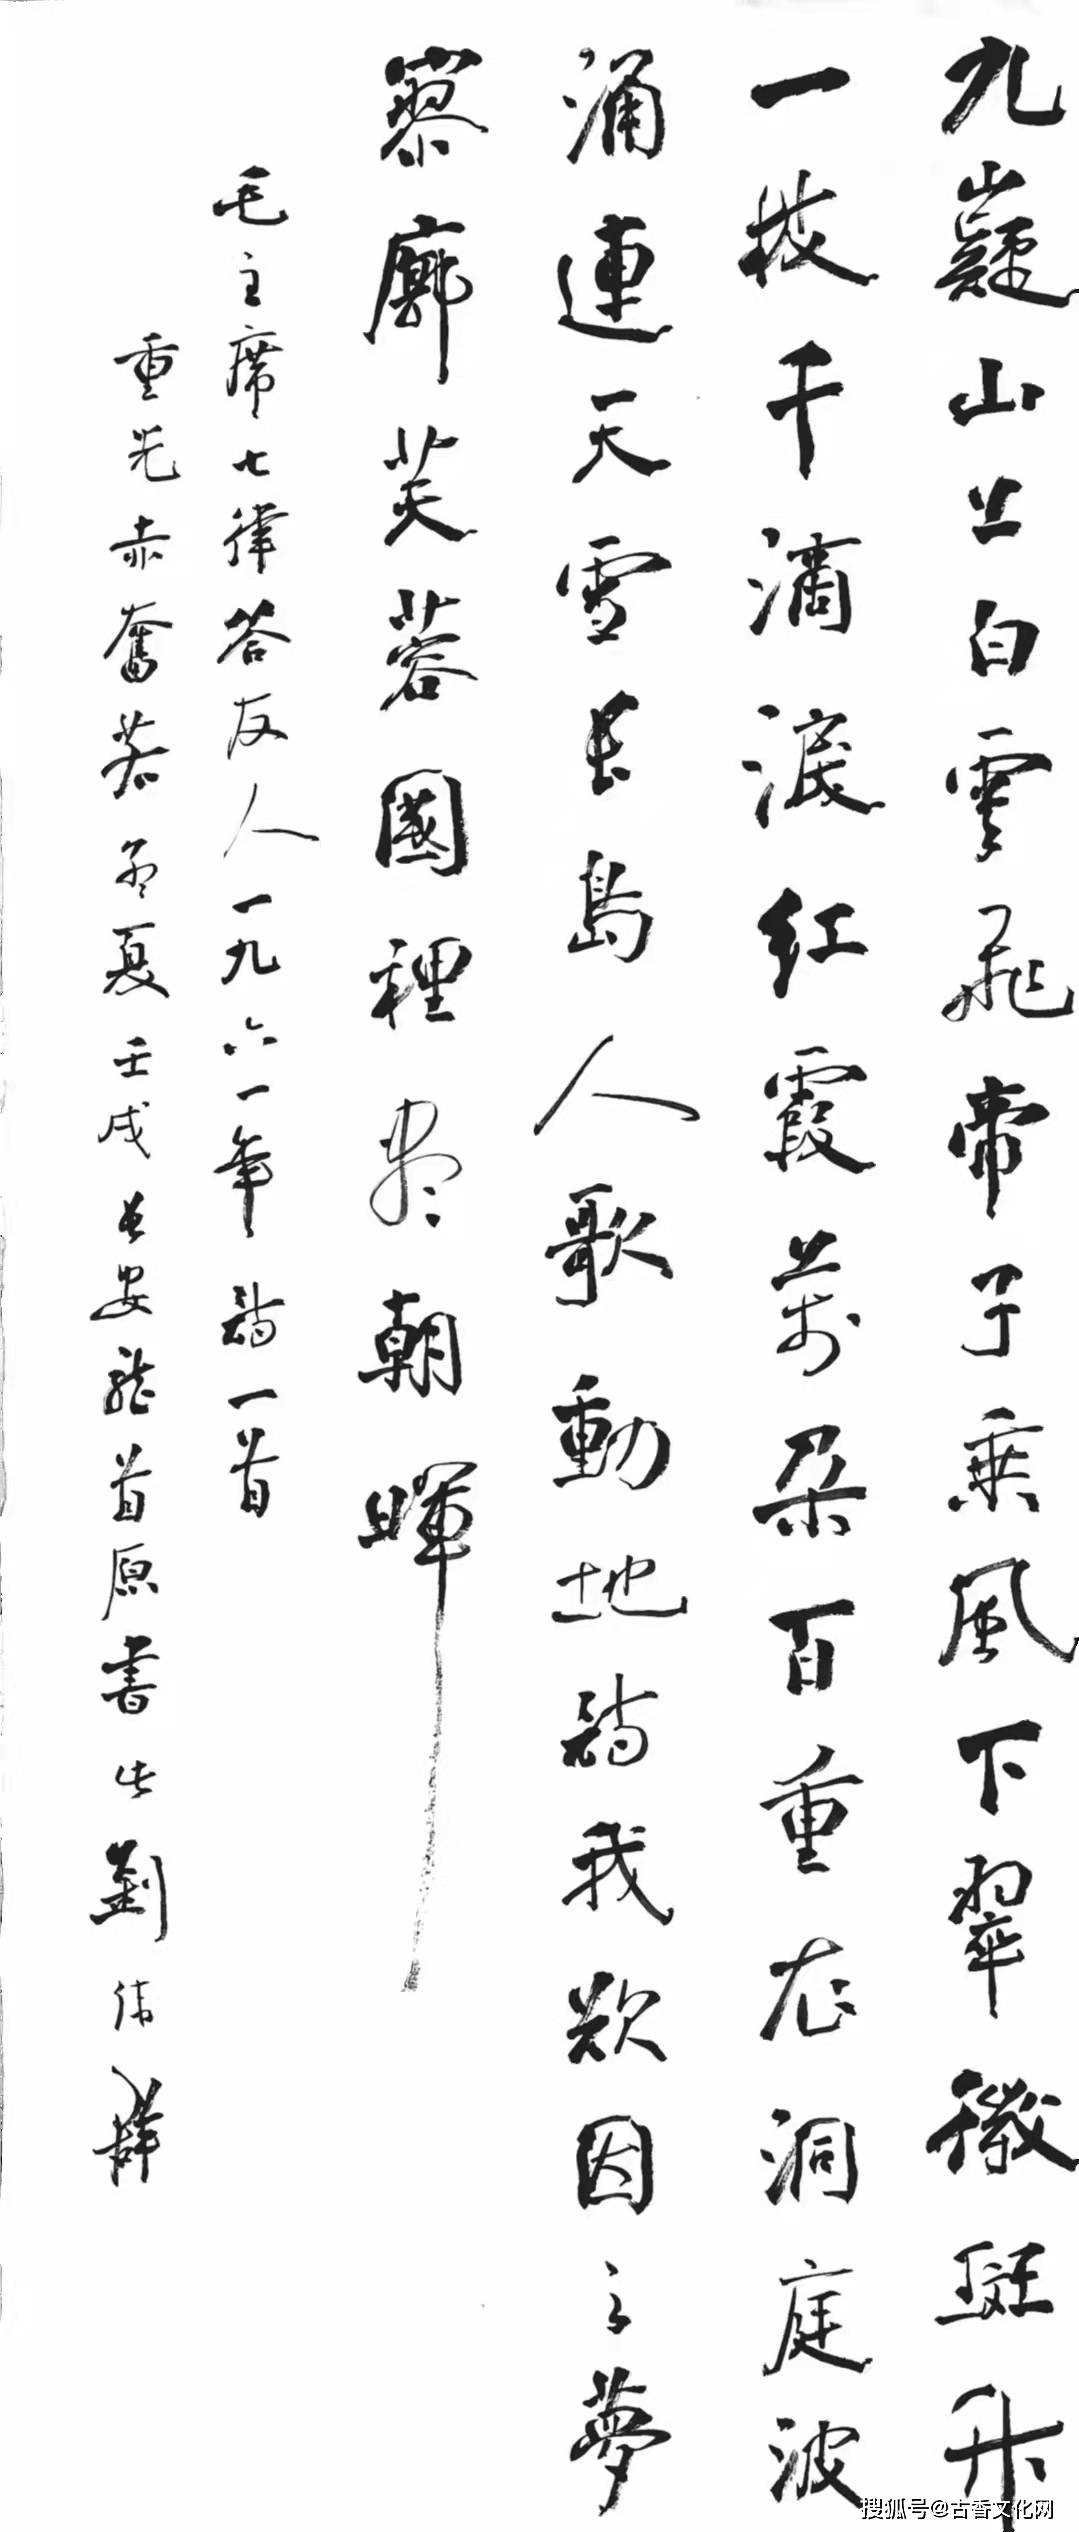 九嶷山上白雲飛帝子乘風下翠微斑竹
一枝千滴淚紅霞萬朵百重衣洞庭波
涌連天雪長島人歌動地詩我欲因之夢
寥廓芙蓉國裡盡朝暉
毛主席七律答友人一九六一年詩一首
重光赤奮若孟夏壬戌長安龍首原書生劉偉肆
搜狐号@古香文化网